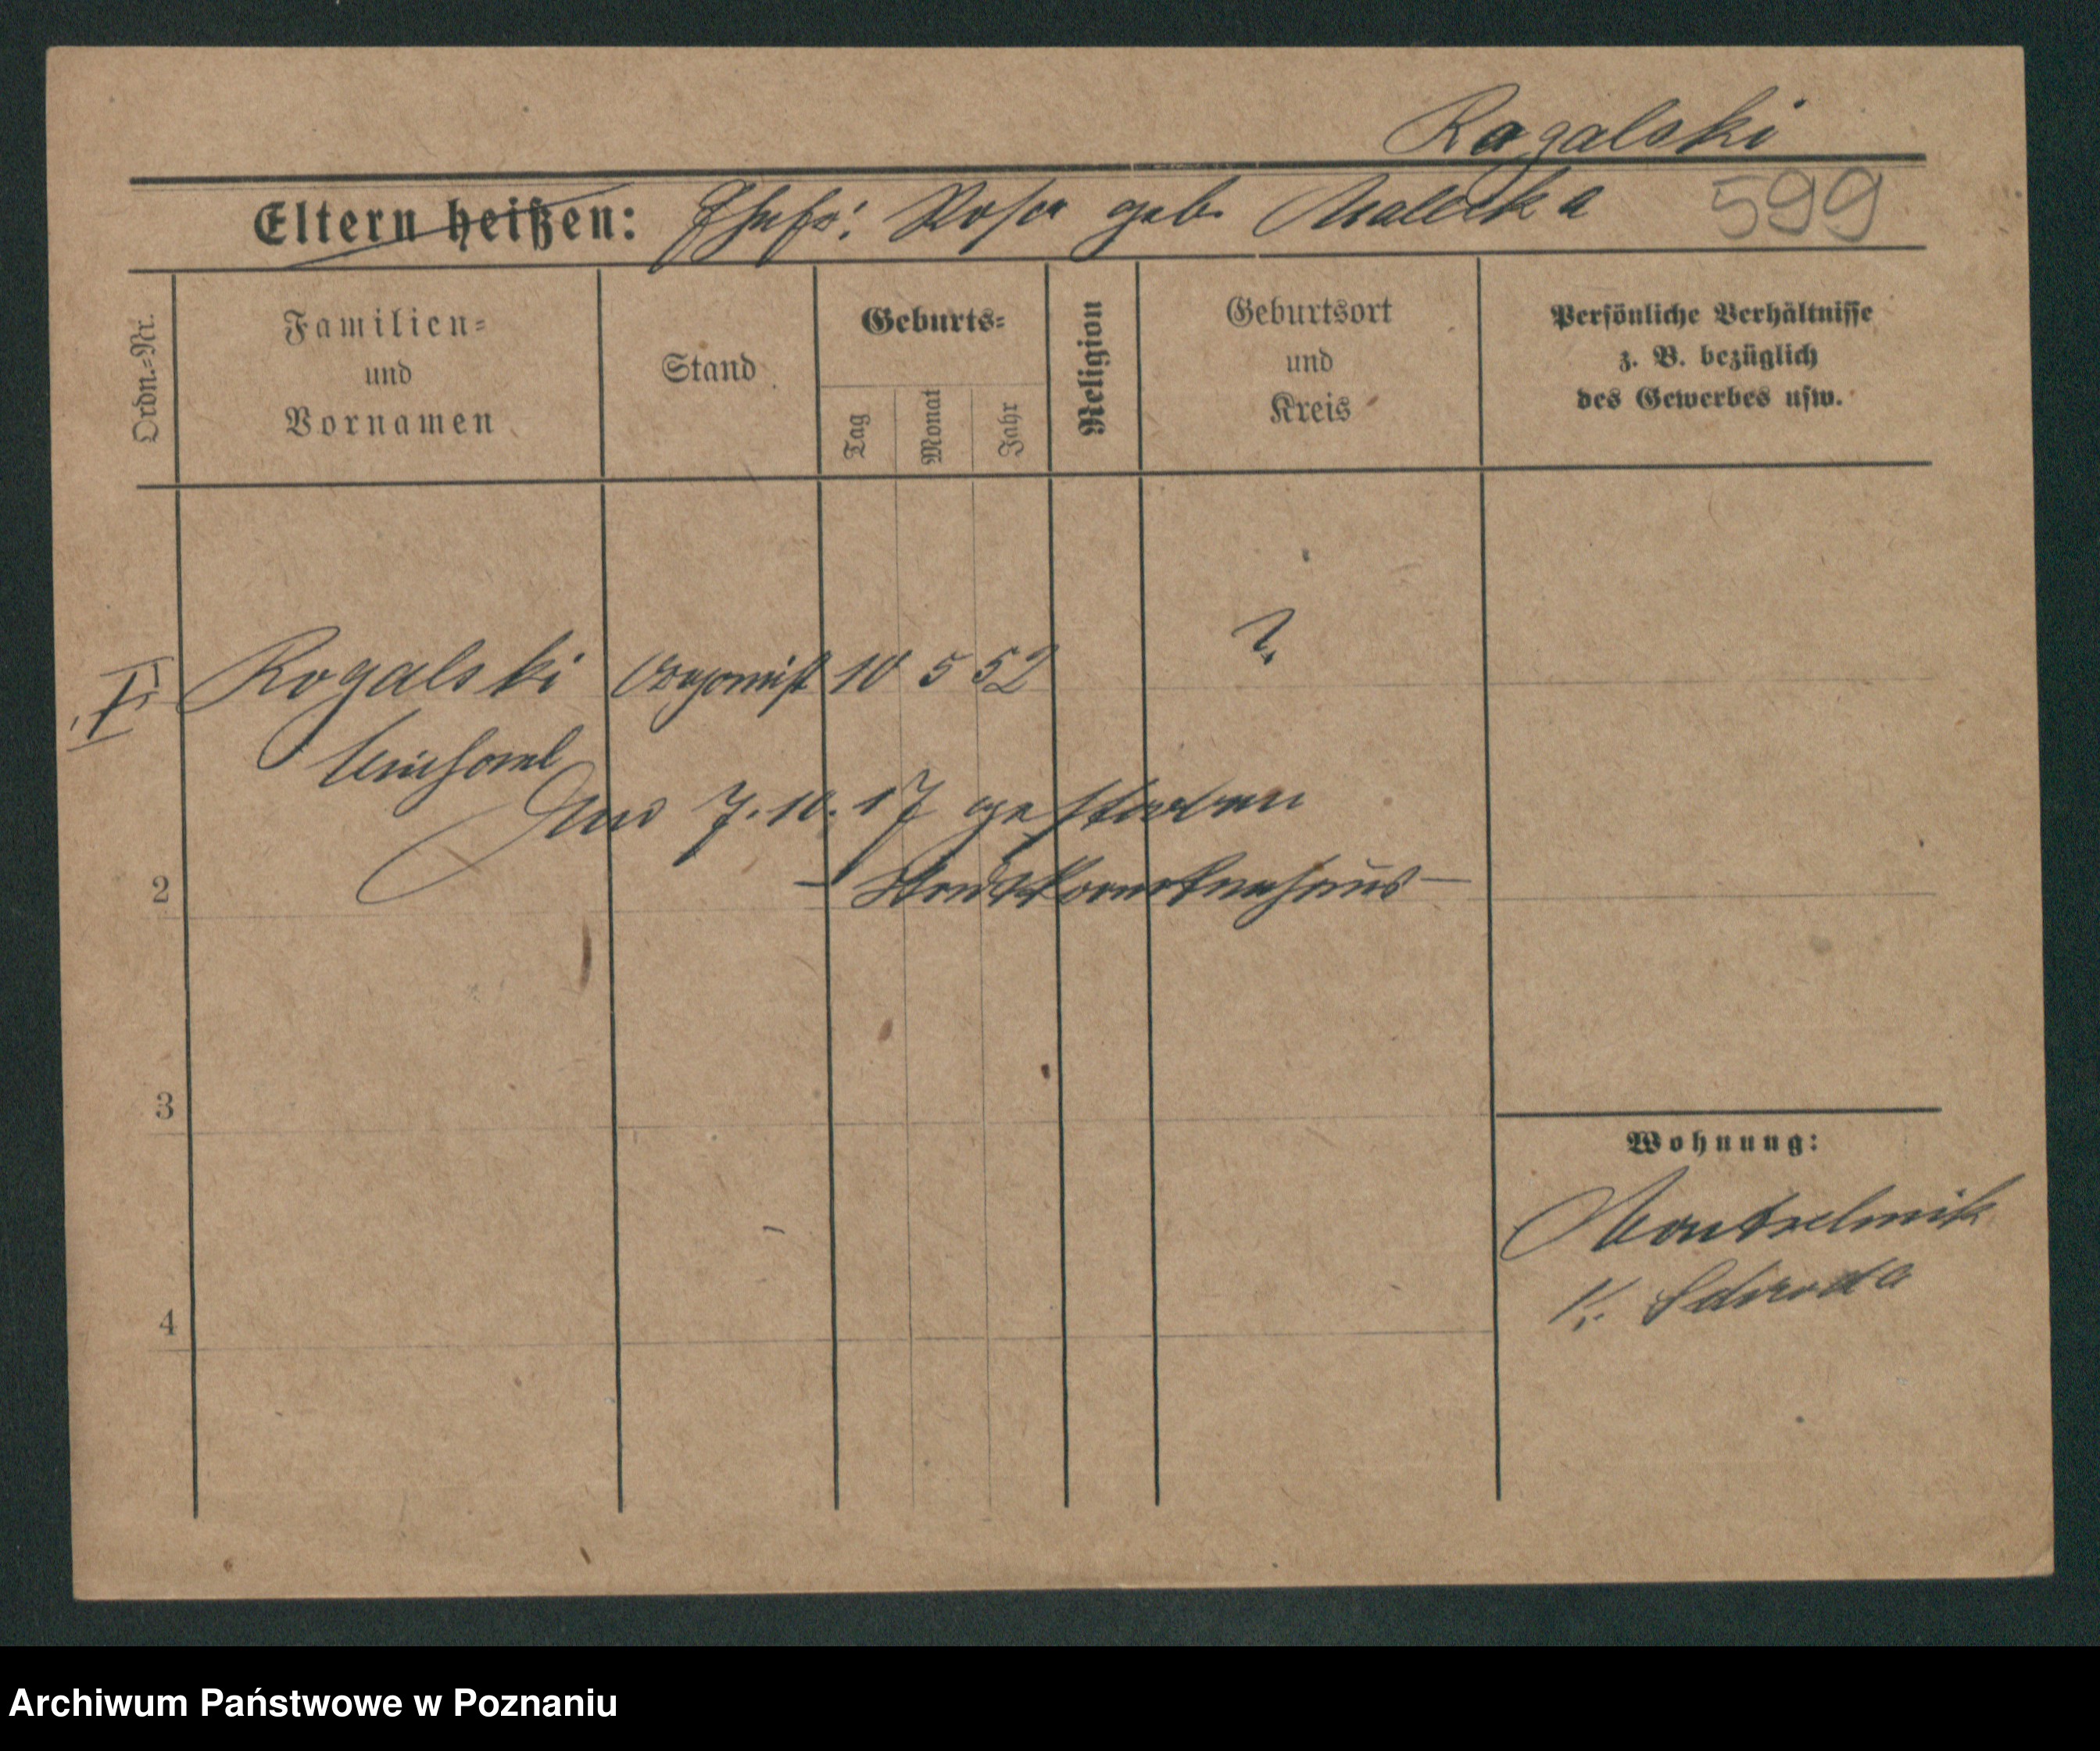 Rogalski
Eltern heißen: Ehefr: Rosa geb. Malecka 599
Ordn.=Nr.
Familien=
und
Vornamen
Stand
Geburts=
Tag
Monat
Jahr
Religion
Geburtsort
und
Kreis
Persönliche Verhältnisse
z. B. bezüglich
des Gewerbes usw.
I Rogalski Organist 10 5 52 ?
Michael
Am 7.10.17 gestorben
2 – Stadtkrankenhaus –
3
Wohnung:
K. Schroda
4
Archiwum Państwowe w Poznaniu